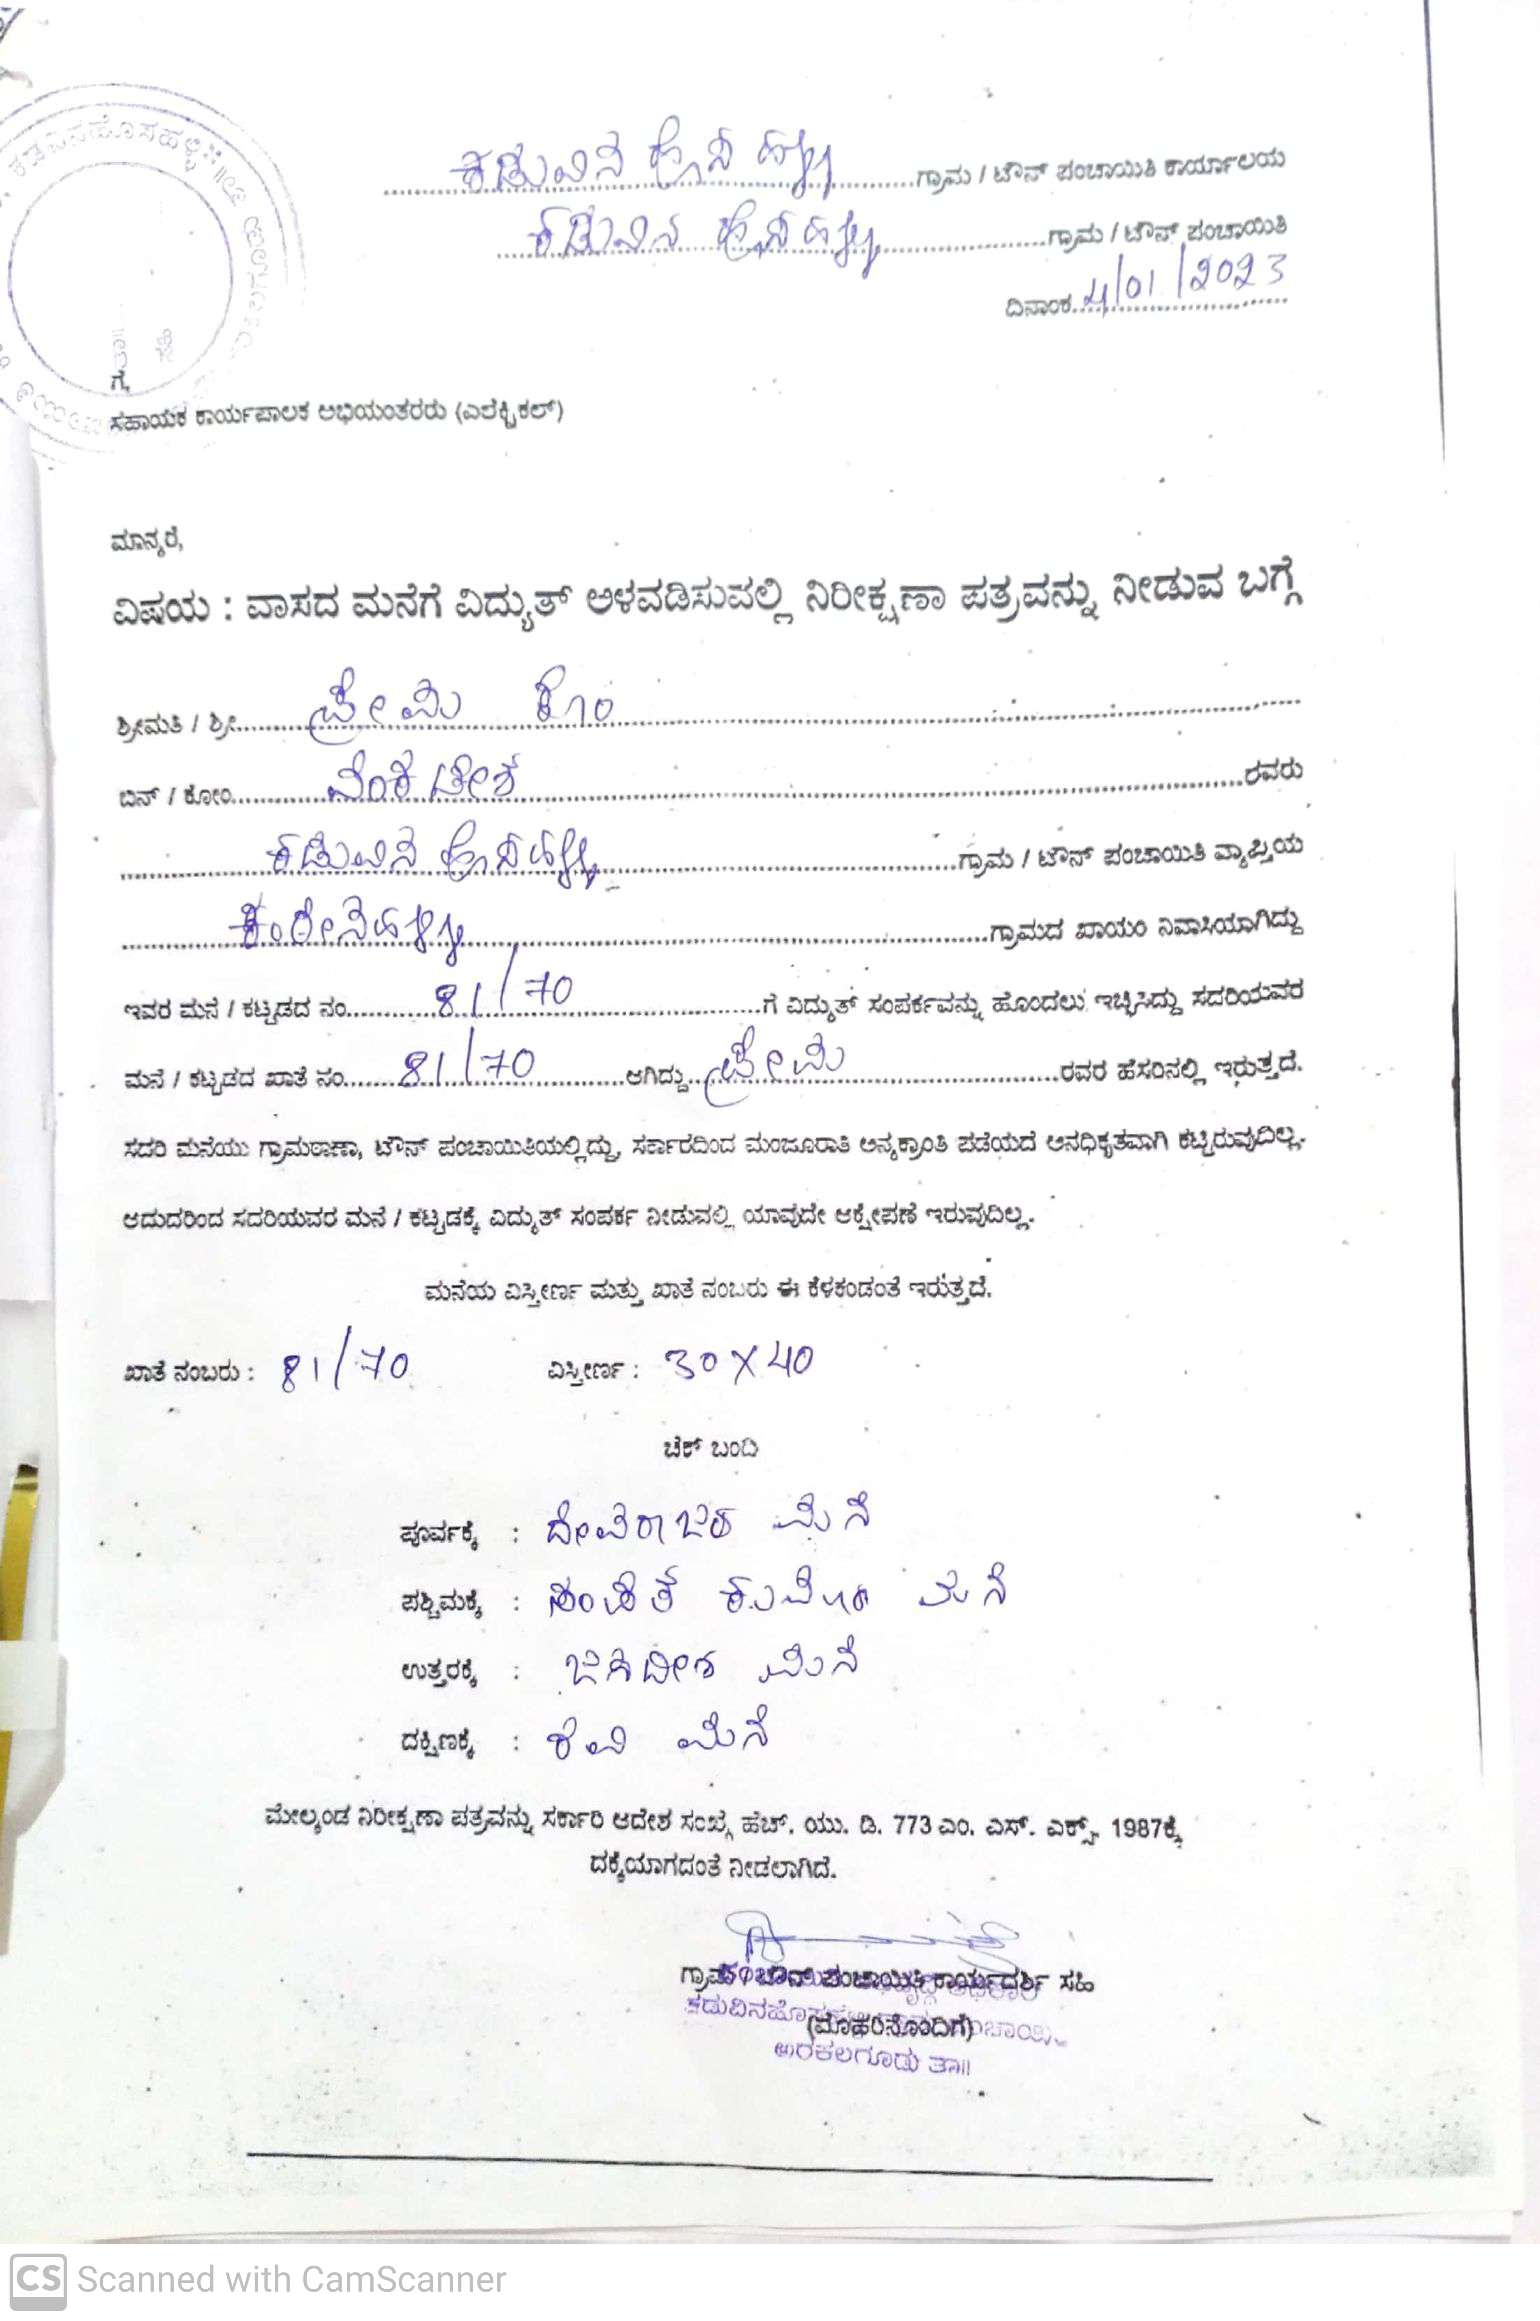 ಕಡುವಿನ ಹೊಸಹಳ್ಳಿ ಗ್ರಾಮ / ಟೌನ್ ಪಂಚಾಯಿತಿ ಕಾರ್ಯಾಲಯ
ಕಡುವಿನ ಹೊಸಹಳ್ಳಿ ಗ್ರಾಮ / ಟೌನ್ ಪಂಚಾಯಿತಿ
ದಿನಾಂಕ 4/01/2023
ಗೆ,
ಸಹಾಯಕ ಕಾರ್ಯಪಾಲಕ ಅಭಿಯಂತರರು (ಎಲೆಕ್ಟ್ರಿಕಲ್)
ಮಾನ್ಯರೆ,
ವಿಷಯ : ವಾಸದ ಮನೆಗೆ ವಿದ್ಯುತ್ ಅಳವಡಿಸುವಲ್ಲಿ ನಿರೀಕ್ಷಣಾ ಪತ್ರವನ್ನು ನೀಡುವ ಬಗ್ಗೆ
ಶ್ರೀಮತಿ / ಶ್ರೀ ಪ್ರೇಮ ಕೋಂ
ಬಿನ್ / ಕೋಂ ವೆಂಕಟೇಶ ರವರು
ಕಡುವಿನ ಹೊಸಹಳ್ಳಿ ಗ್ರಾಮ / ಟೌನ್ ಪಂಚಾಯಿತಿ ವ್ಯಾಪ್ತಿಯ
ಗ್ರಾಮದ ಖಾಯಂ ನಿವಾಸಿಯಾಗಿದ್ದು
ಇವರ ಮನೆ / ಕಟ್ಟಡದ ನಂ 81/70 ಗೆ ವಿದ್ಯುತ್ ಸಂಪರ್ಕವನ್ನು ಹೊಂದಲು ಇಚ್ಛಿಸಿದ್ದು ಸದರಿಯವರ
ಮನೆ / ಕಟ್ಟಡದ ಖಾತೆ ನಂ 81/70 ಆಗಿದ್ದು ಪ್ರೇಮ ರವರ ಹೆಸರಿನಲ್ಲಿ ಇರುತ್ತದೆ.
ಸದರಿ ಮನೆಯು ಗ್ರಾಮಠಾಣಾ, ಟೌನ್ ಪಂಚಾಯಿತಿಯಲ್ಲಿದ್ದು, ಸರ್ಕಾರದಿಂದ ಮಂಜೂರಾತಿ ಅನ್ಯಕ್ರಾಂತಿ ಪಡೆಯದೆ ಅನಧಿಕೃತವಾಗಿ ಕಟ್ಟಿರುವುದಿಲ್ಲ.
ಆದುದರಿಂದ ಸದರಿಯವರ ಮನೆ / ಕಟ್ಟಡಕ್ಕೆ ವಿದ್ಯುತ್ ಸಂಪರ್ಕ ನೀಡುವಲ್ಲಿ ಯಾವುದೇ ಆಕ್ಷೇಪಣೆ ಇರುವುದಿಲ್ಲ.
ಮನೆಯ ವಿಸ್ತೀರ್ಣ ಮತ್ತು ಖಾತೆ ನಂಬರು ಈ ಕೆಳಕಂಡಂತೆ ಇರುತ್ತದೆ.
ಖಾತೆ ನಂಬರು : 81/70 ವಿಸ್ತೀರ್ಣ : 30 X 40
ಚೆಕ್ ಬಂದಿ
ಪೂರ್ವಕ್ಕೆ : ದೇವರಾಜರ ಮನೆ
ಪಶ್ಚಿಮಕ್ಕೆ : ಸಂಪತ್ ಕುಮಾರ ಮನೆ
ಉತ್ತರಕ್ಕೆ : ಜಗದೀಶ ಮನೆ
ದಕ್ಷಿಣಕ್ಕೆ : ರವಿ ಮನೆ
ಮೇಲ್ಕಂಡ ನಿರೀಕ್ಷಣಾ ಪತ್ರವನ್ನು ಸರ್ಕಾರಿ ಆದೇಶ ಸಂಖ್ಯೆ ಹೆಚ್. ಯು. ಡಿ. 773 ಎಂ. ಎಸ್. ಎಕ್ಸ್. 1987ಕ್ಕೆ
ದಕ್ಕೆಯಾಗದಂತೆ ನೀಡಲಾಗಿದೆ.
ಗ್ರಾಮ / ಟೌನ್ ಪಂಚಾಯಿತಿ ಕಾರ್ಯದರ್ಶಿ ಸಹಿ
(ಮೊಹರಿನೊಂದಿಗೆ)
ಅರಕಲಗೂಡು ತಾ॥
CS Scanned with CamScanner